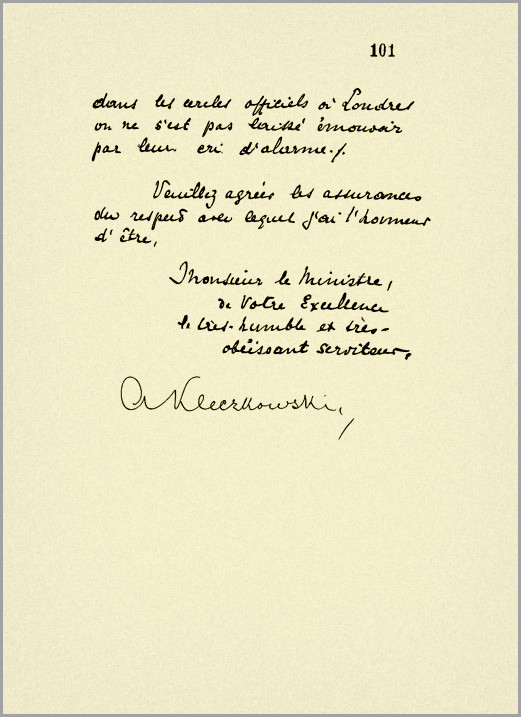 101
dans les cercles officiels où Londres
on ne s'est pas laissé émouvoir
par leur cri d'alarme./.
Veuillez agréer les assurances
du respect avec lequel j'ai l'honneur
d'être,
Monsieur le Ministre,
de Votre Excellence
le très-humble et très-
obéissant serviteur,
A Kleczkowski,